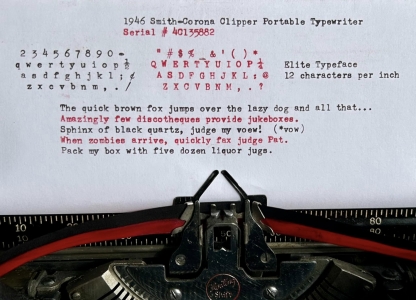 1946 Smith-Corona Clipper Portable Typewriter
Serial # 40135882
2 3 4 5 6 7 8 9 0 - " # $ % _ & ' ( ) *
q w e r t y u i o p ½ Q W E R T Y U I O P ¼ Elite Typeface
a s d f g h j k l ; ¢ A S D F G H J K L : @ 12 characters per inch
z x c v b n m , . / Z X C V B N M , . ?
The quick brown fox jumps over the lazy dog and all that...
Amazingly few discotheques provide jukeboxes.
Sphinx of black quartz, judge my voew! (*vow)
When zombies arrive, quickly fax judge Pat.
Pack my box with five dozen liquor jugs.
10 80
20 70